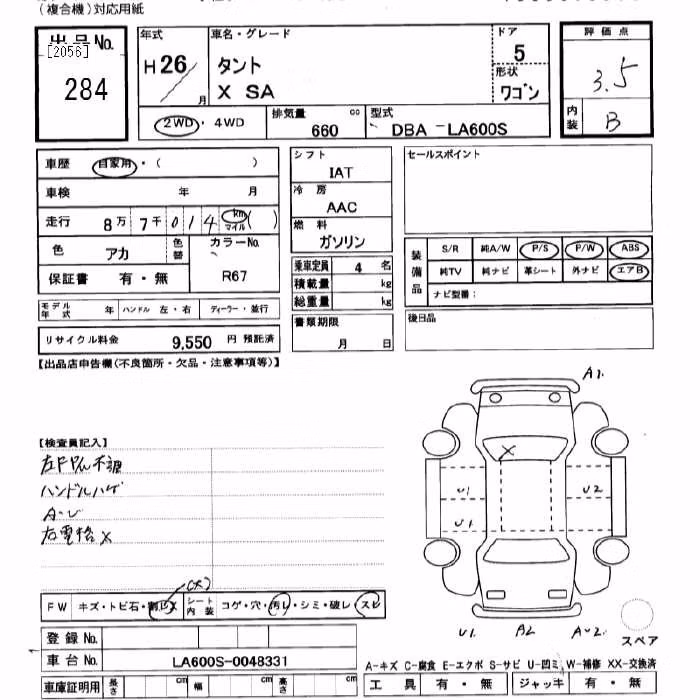 (複合機)対応用紙
出品No.
[2056]
284
年式
H26/
月
車名・グレード
タント
X SA
ドア
5
形状
ワゴン
評価点
3.5
内装
B
2WD・4WD
排気量
cc
660
型式
DBA -LA600S
車歴
自家用・( )
車検
年 月
走行
8万7千014
km
マイル
( )
色
アカ
色替
カラーNo.
R67
保証書
有・無
モデル年式
年
ハンドル 左・右
ディーラー・並行
リサイクル料金
9,550 円 預託済
シフト
IAT
冷房
AAC
燃料
ガソリン
乗車定員 4 名
積載量 kg
総重量 kg
書類期限
月 日
セールスポイント
装備品
S/R 純A/W P/S P/W ABS
純TV 純ナビ 革シート 外ナビ エアB
ナビ型番:
後日品
【出品店申告欄(不良箇所・欠品・注意事項等)】
【検査員記入】
ハンドルハゲ
A-U
右電格X
A1.
X
U1
U2
U1
U1.
A2
A-U2.
スペア
(X)
FW キズ・トビ石・割レX
シート内装 コゲ・穴・汚レ・シミ・破レ スレ
登録No.
車台No.
LA600S-0048331
車庫証明用 長さ cm 幅 cm 高さ cm
A-キズ C-腐食 E-エクボ S-サビ U-凹ミ W-補修 XX-交換済
工具 有・無 ジャッキ 有・無